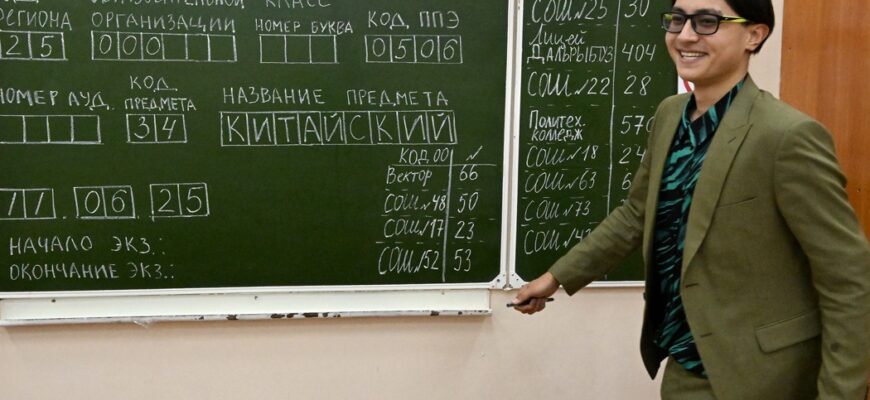 ОБРАЗОВАТЕЛЬНОЙ КЛАСС
РЕГИОНА ОРГАНИЗАЦИИ НОМЕР БУКВА КОД ППЭ
25 000 0506
НОМЕР АУД. КОД ПРЕДМЕТА НАЗВАНИЕ ПРЕДМЕТА
34 КИТАЙСКИЙ
11.06.25
НАЧАЛО ЭКЗ.:
ОКОНЧАНИЕ ЭКЗ.:
КОД ОО №
Вектор 66
СОШ №48 50
СОШ №17 23
СОШ №52 53
СОШ №25 30
Лицей
Дальрыбвтуз 404
СОШ №22 28
Политех.
колледж 570
СОШ №18
СОШ №63
СОШ №73